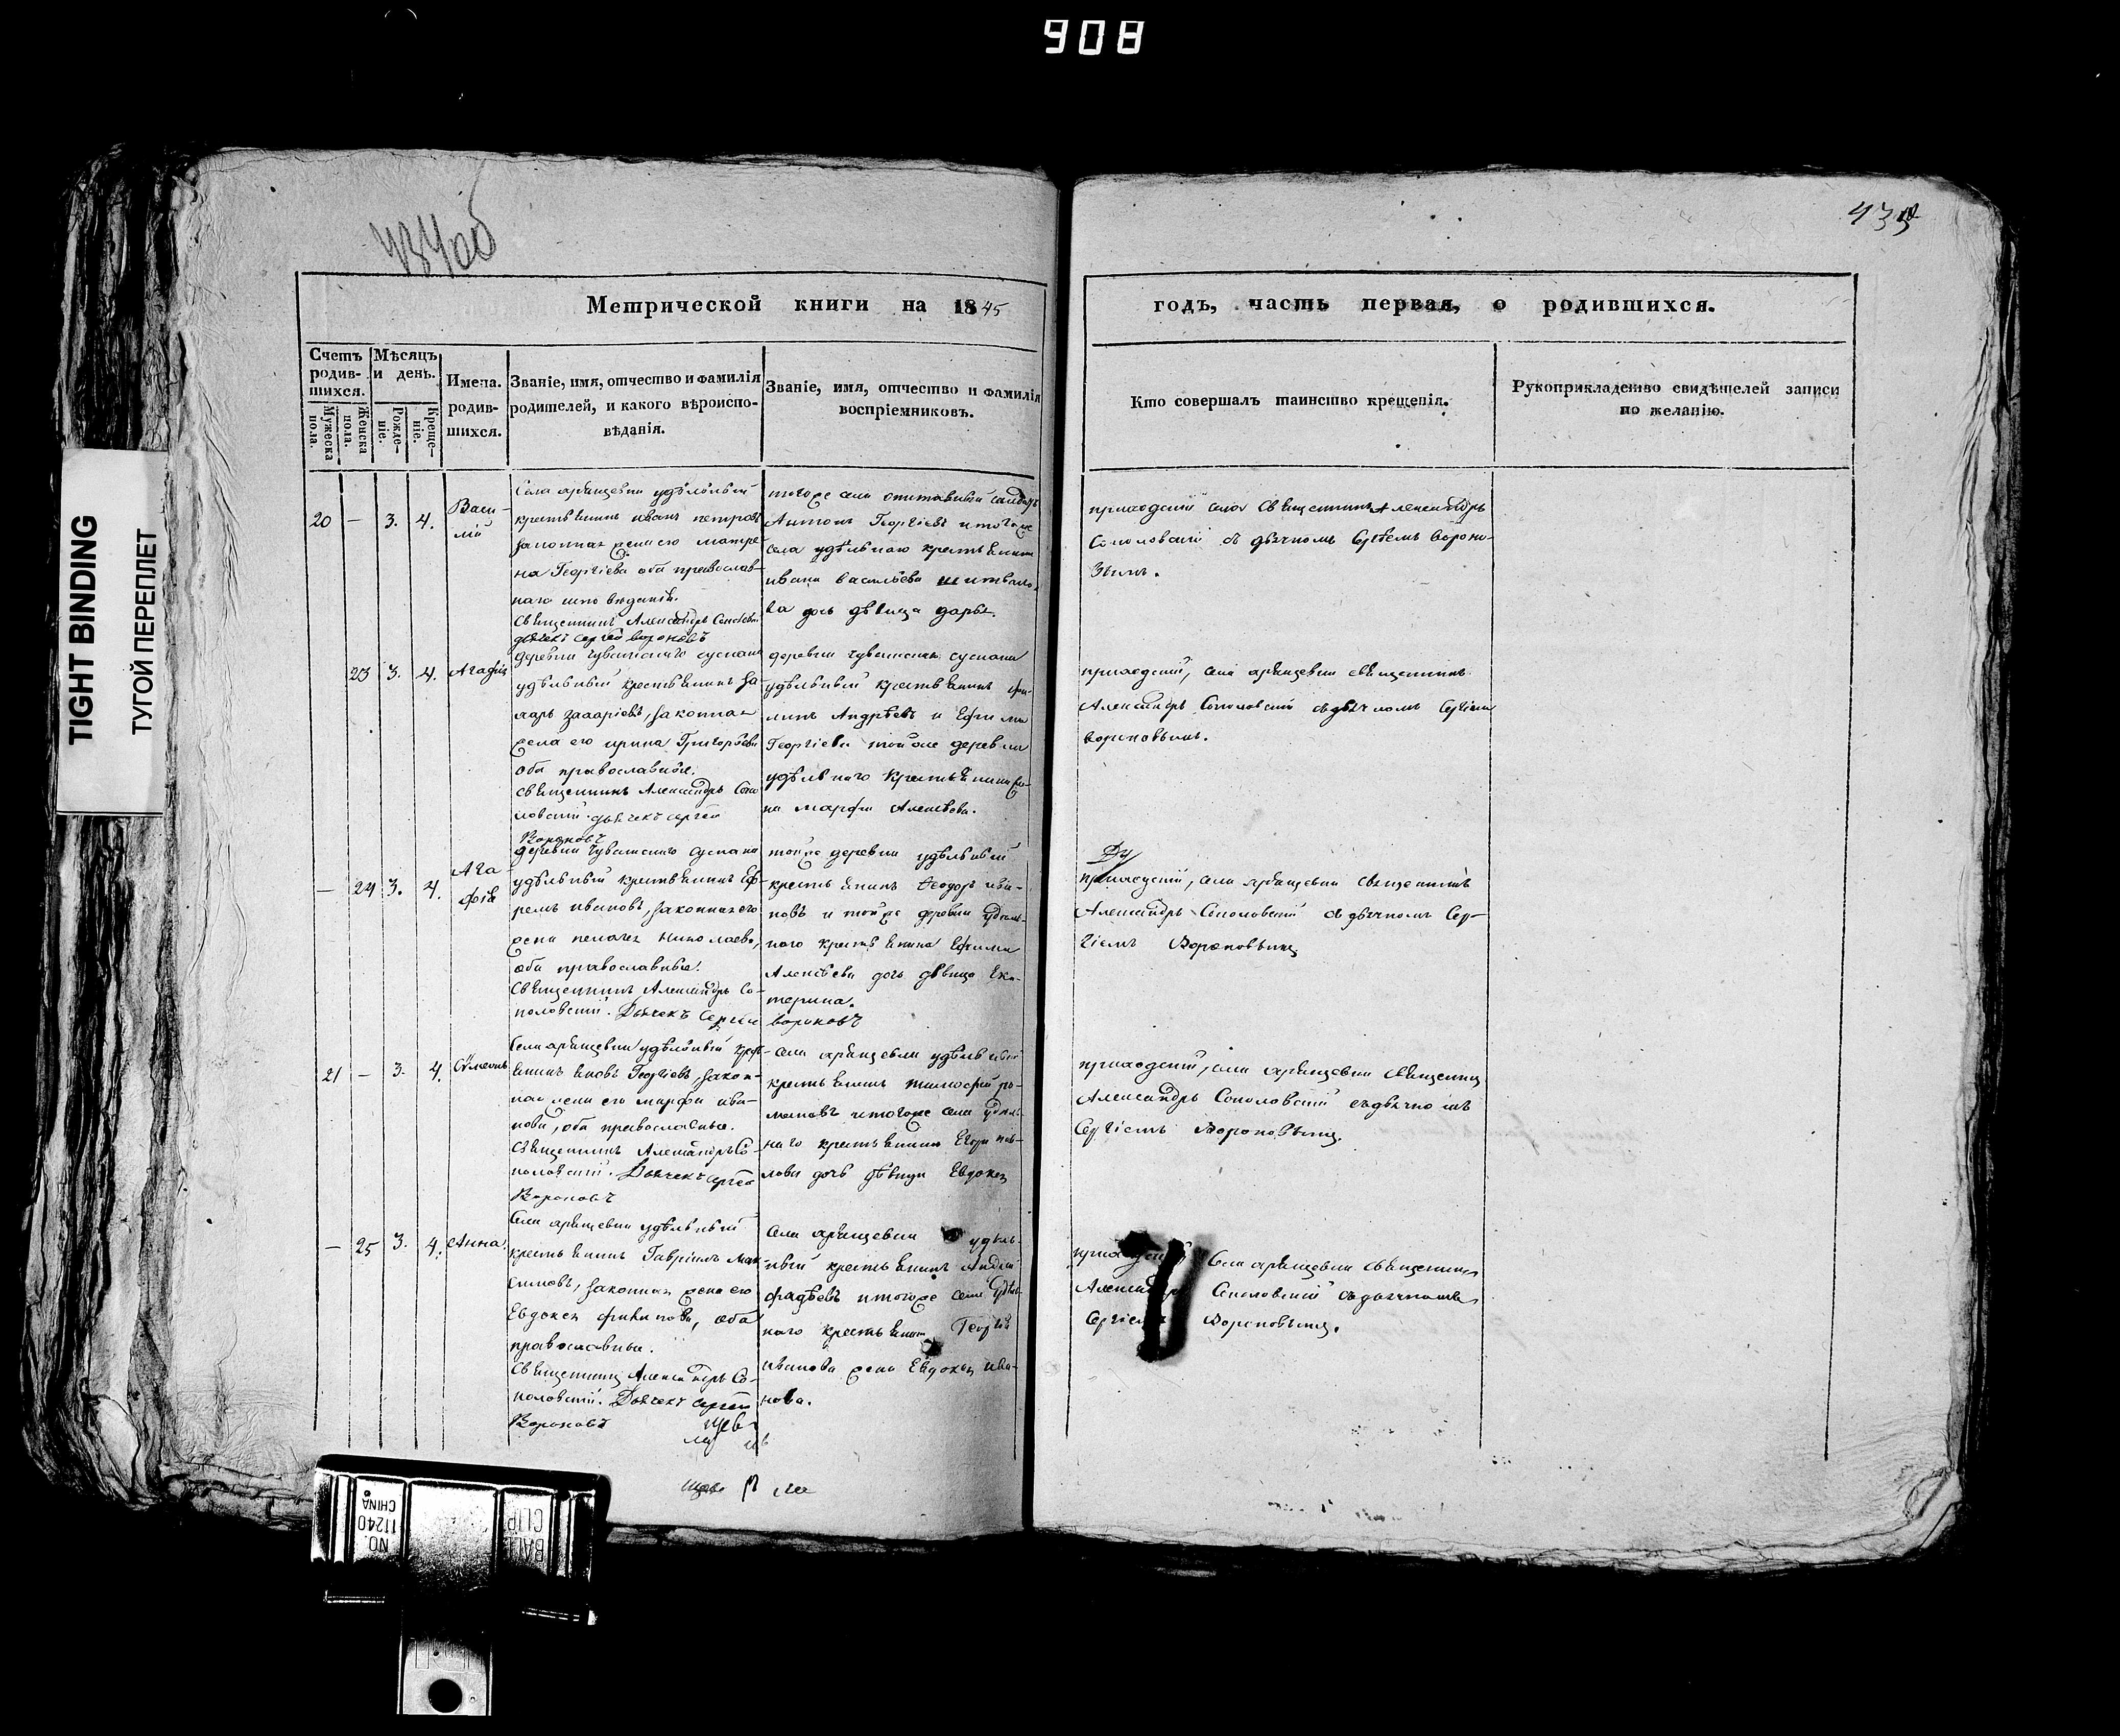 908
434 об
435
TIGHT BINDING
ТУГОЙ ПЕРЕПЛЕТ
Метрической книги на 1845
годъ, часть первая, о родившихся.
Счетъ родив-шихся.
Мужеска пола.
Женска пола.
Мѣсяцъ и день.
Рожде-ніе.
Креще-ніе.
Имена. родив-шихся.
Званіе, имя, отчество и фамилія
родителей, и какого вѣроиспо-
вѣданія.
Званіе, имя, отчество и фамилія
воспріемниковъ.
Кто совершалъ таинство крещенія.
Рукоприкладство свидѣтелей записи
по желанію.
20 — 3. 4.
Васи-
лій
Села удѣльный
крестьянинъ иванъ петровъ
законная жена его матре-
на Георгіева оба православ-
наго
Священникъ Александръ
дьячекъ сергей вороновъ
тогоже села отставный солдатъ
Антонъ Георгіевъ и тогоже
села удѣльнаго крестьянина
ивана васильева
ва дочь дѣвица дарья.
приходскій села Священникъ Александръ
Соколовскій съ дьячкомъ Сергіемъ Вороно-
вымъ.
23 3. 4. Агафія
деревни чувашскаго сускана
удѣльный крестьянинъ за-
харъ захаріевъ, законная
жена его ирина Григорьева
оба православные.
священникъ Александръ Соко
ловскій дьячекъ сергей
Вороновъ
деревни чувашскаго сускана
удѣльный крестьянинъ фи-
липъ Андрѣевъ и
Георгіева тойже деревни
удѣльнаго крестьянина же-
на марфа Алексѣева.
приходскій, села священникъ
Александръ Соколовскій съ дьячкомъ Сергіемъ
вороновымъ.
— 24 3. 4.
Ага-
фія
деревни чувашскаго сускана
удѣльный крестьянинъ Еф-
ремъ ивановъ, законная его
жена пелагея николаева,
оба православные.
Священникъ Александръ Со-
коловскій. Дьячекъ Сергей
тойже деревни удѣльный
крестьянинъ Ѳеодоръ ива-
новъ и тойже деревни удѣль-
наго крестьянина Ефима
Алексѣева дочь дѣвица Ека-
терина.
вороновъ
приходскій, села священникъ
Александръ Соколовскій съ дьячкомъ Сер-
гіемъ Вороновымъ
21 — 3. 4. Сѵмеонъ
Села удѣльный крест-
янинъ Георгіевъ, закон-
ная жена его марфа ива-
нова, оба православные.
Священникъ Александръ Со-
коловскій. Дьячекъ сергей
Вороновъ
села удѣльный
крестьянинъ тимофей ро-
мановъ и тогоже села удѣль-
наго крестьянина Егора пав-
лова дочь дѣвица Евдокея
приходскій, села священникъ
Александръ Соколовскій съ дьячкомъ
Сергіемъ Вороновымъ.
— 25 3. 4. Анна.
Села удѣльный
крестьянинъ Гавріилъ мак
симовъ, законная жена его
Евдокея филипова, оба
православные.
Священникъ Александръ Со-
коловскій. Дьячекъ сергей
Вороновъ
Села удѣль-
ный крестьянинъ Андрей
фадѣевъ и тогоже села удѣль-
наго крестьянина Георгія
иванова жена Евдокея ива-
нова.
приходскій Села священникъ
Александръ Соколовскій съ дьячкомъ
Сергіемъ Вороновымъ.
NO. 11240
CHINA
CLIP